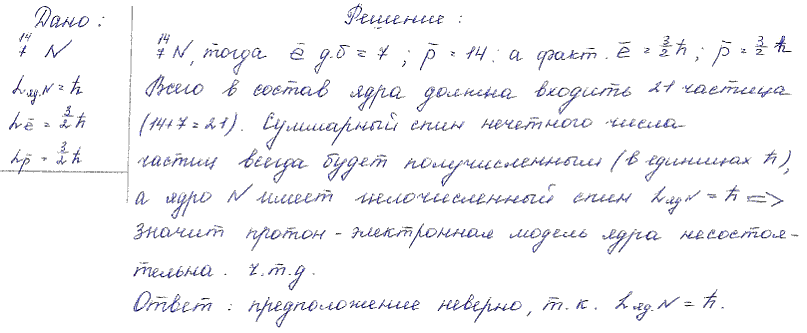 Дано:
¹⁴₇N
Lяд.N = ħ
Lē = 3/2 ħ
Lp̄ = 3/2 ħ
Решение:
¹⁴₇N, тогда ē д.б = 7; p̄ = 14: а факт. ē = 3/2 ħ; p̄ = 3/2 ħ
Всего в состав ядра должна входить 21 частица
(14+7=21). Суммарный спин нечетного числа
частиц всегда будет получисленным (в единицах ħ),
а ядро N имеет целочисленный спин Lяд N = ħ =>
значит протон-электронная модель ядра несостоя-
тельна. ч.т.д.
Ответ: предположение неверно, т.к. Lяд.N = ħ.